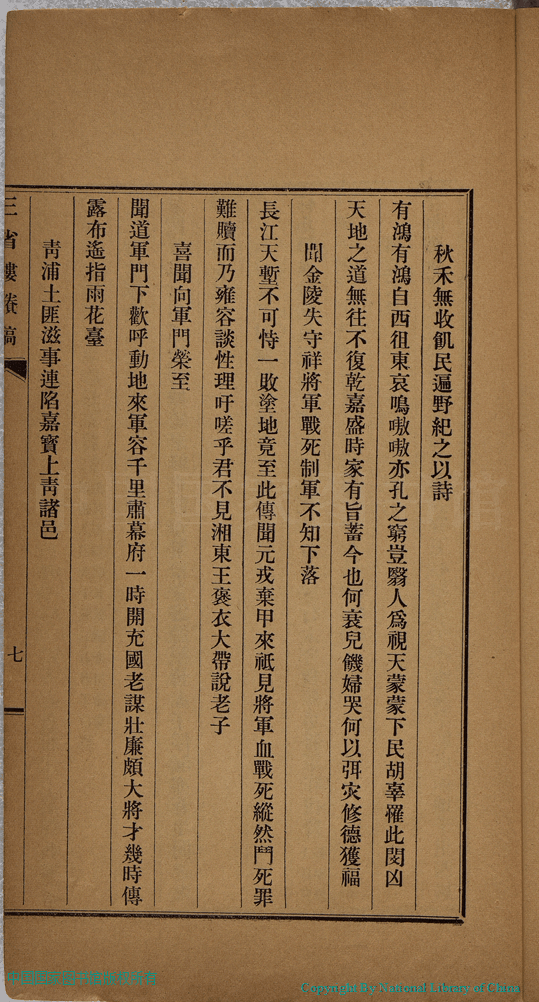 秋禾無收飢民遍野紀之以詩
有鴻有鴻自西徂東哀鳴嗷嗷亦孔之窮豈翳人爲視天蒙蒙下民胡辜罹此閔凶
天地之道無往不復乾嘉盛時家有旨蓄今也何衰兒饑婦哭何以弭灾修德獲福
聞金陵失守祥將軍戰死制軍不知下落
長江天塹不可恃一敗塗地竟至此傳聞元戎棄甲來祇見將軍血戰死縱然鬥死罪
難贖而乃雍容談性理吁嗟乎君不見湘東王褒衣大帶說老子
喜聞向軍門榮至
聞道軍門下歡呼動地來軍容千里肅幕府一時開充國老謀壯廉頗大將才幾時傳
露布遙指雨花臺
靑浦土匪滋事連陷嘉寳上靑諸邑
三省樓賸稿
七
Copyright by National Library of China